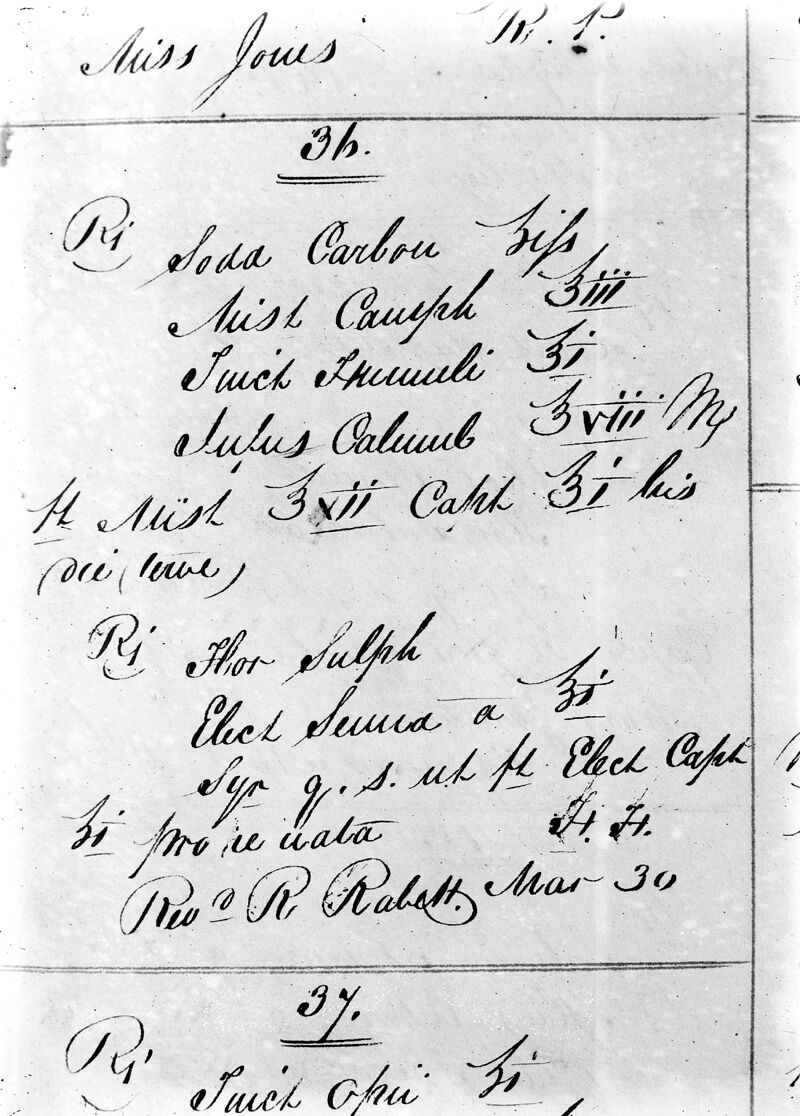 Miss Jones R. P.
36.
Rj Soda Carbon ʒifs
Mist Camph ℥iii
Tinct Humuli ℥i
Infus Calumb ℥viii M
ft Mist ℥xii Capt ℥i bis
die (terve)
Rj Flor Sulph
Elect Senna a ℥i
Syr q. s. ut ft Elect Capt
ʒi pro re nata H. H.
Revd R Rabett. Mar 30
37.
Rj Tinct Opii ʒi